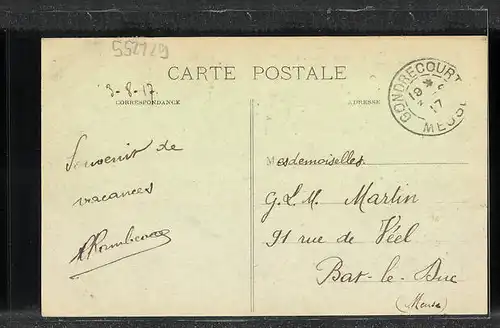 552129
CARTE POSTALE
3-8-17.
CORRESPONDANCE
ADRESSE
GONDRECOURT
19
17
MEUSE
Souvenir de
vacances
Mesdemoiselles
G. L. M. Martin
91 rue de Véel
Bar-le-Duc
(Meuse)